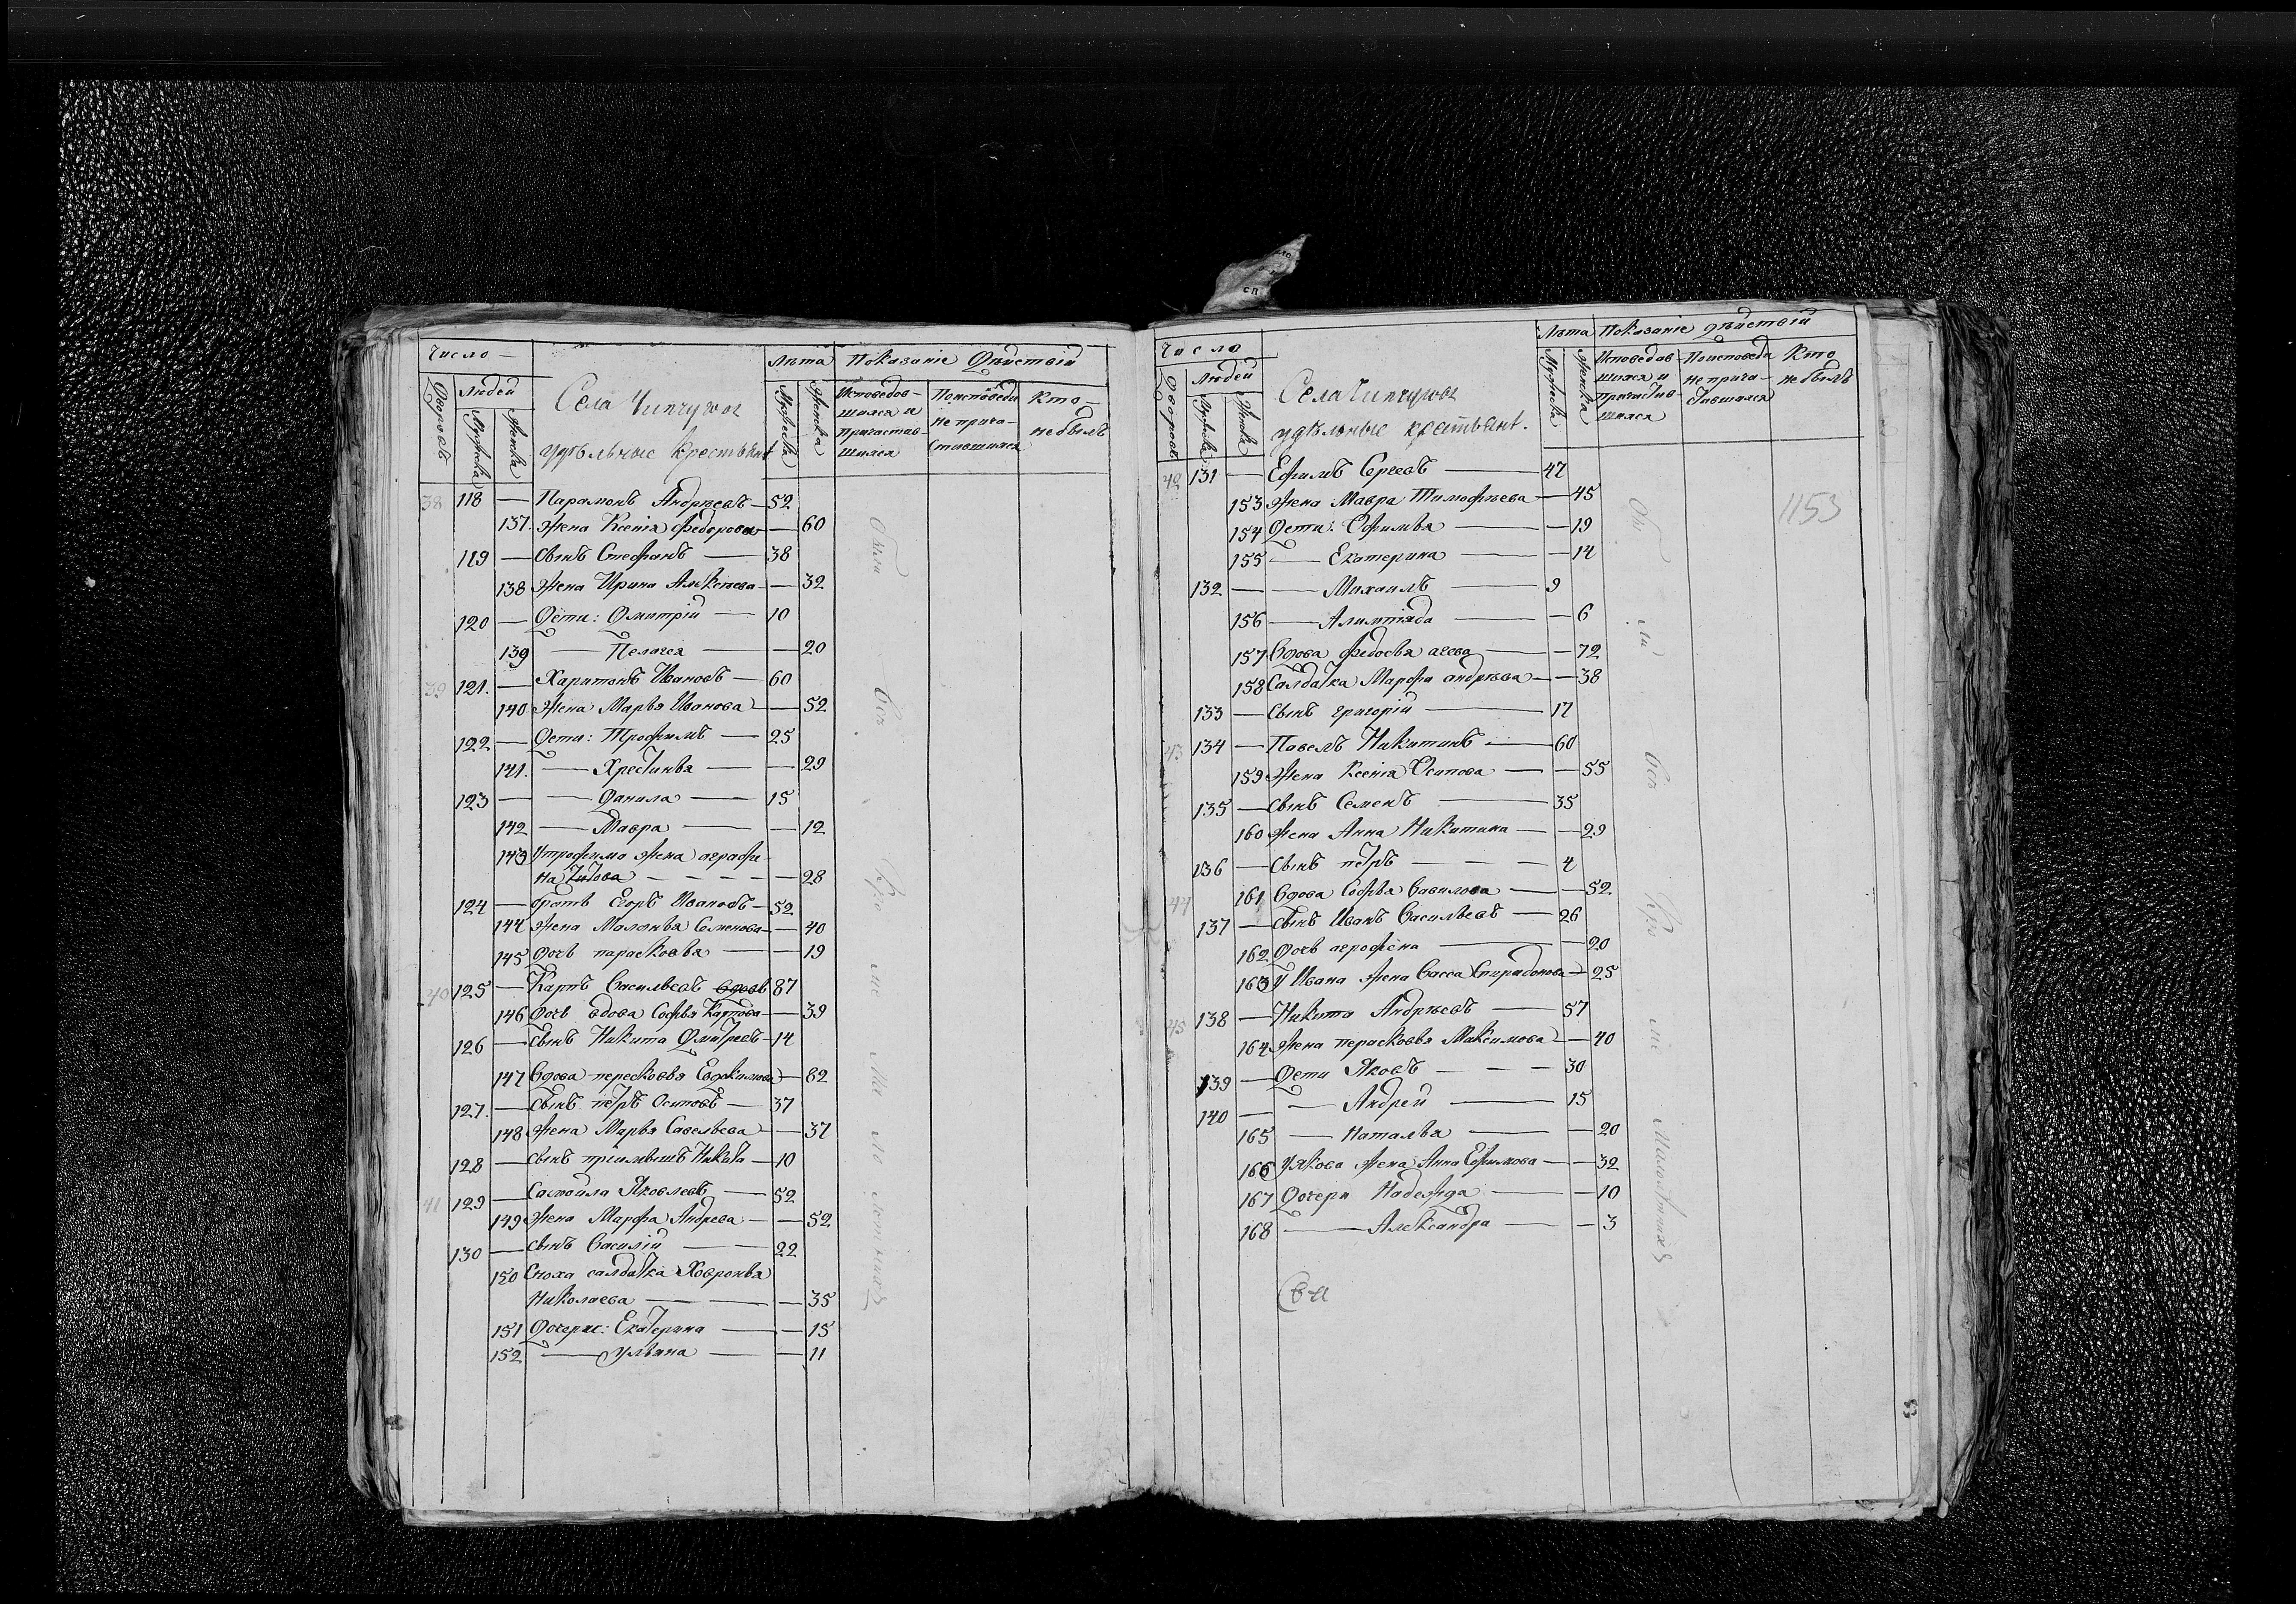 Число
Лѣта Показаніе Дѣйствій
Дворовъ Людей
Мужеска Женска
Села Чипчугова
удѣльные крестьяне
Мужеска Женска
Исповедов-
шияся и
Причастив-
шияся
Поисповеди
не прича-
стившияся
Кто
не былъ
38 118 — Парамонъ Андреевъ — 52
137. Жена Ксенія Федорова — 60
119 — Сынъ Стефанъ — 38
138 Жена Ирина Алексеева — 32
120 — Дети: Дмитрій — 10
139 — Пелагея — 20
39 121. — Харитонъ Ивановъ — 60
140 Жена Марья Иванова — 52
122 — Дети: Трофимъ — 25
141. — Хрестинья — 29
123 — Данила — 15
142 — Мавра — 12
143 Утрофима жена аграфи-
на Титова — 28
124 — братъ Егоръ Ивановъ — 52
144 Жена Маланья Семенова — 40
145 Дочь парасковья — 19
40 125 — Карпъ Васильевъ вдовъ 87
146 Дочь вдова Софья Карпова — 39
126 — Сынъ Никита Дмитреевъ — 14
147 Вдова пересковья Евдокимова — 62
127. — Сынъ петръ Осиповъ — 37
148 Жена Марья Савельева — 37
128 — Сынъ приимышъ Никита — 10
41 129 — Самойла Яковлевъ — 52
149 Жена Марфа Андреева — 52
130 — Сынъ Василій — 22
150 Сноха салдатка Хавронья
Николаева — 35
151 Дочери: Екатерина — 15
152 — Ульяна — 11
Были
Всѣ
Кро
ме
Ма ло летныхъ
Число
Лѣта Показаніе дѣйствій
Дворовъ Людей
Мужеска Женска
Села Чипчугова
удѣльные крестьяне.
Мужеска Женска
Исповедав-
шияся и
Причастив-
шияся
Поисповеди
не прича-
стившияся
Кто
не былъ
42 131 — Ефимъ Сергеевъ — 47
153 Жена Мавра Тимофеева — 45
154 Дети: Офимья — 19
155 — Екатерина — 14
132 — Михаилъ — 9
156 — Алимпіяда — 6
157 Вдова Федосья агева — 72
158 Салдатка Марфа андреева — 38
133 — Сынъ григорій — 17
43 134 — Павелъ Никитинъ — 60
159 Жена Ксенія Осипова — 55
135 — Сынъ Семенъ — 35
160 Жена Анна Никитина — 29
136 — Сынъ петръ — 4
44 161 Вдова Софья Вавилова — 52
137 — Сынъ Иванъ Васильевъ — 26
162 Дочь агрофена — 20
163 У Ивана жена Васса Спиридонова — 25
45 138 — Никита Андреевъ — 57
164 Жена перасковья Максимова — 40
139 — Дети Яковъ — 30
140 — Андрей — 15
165 — Наталья — 20
166 Уякова жена Анна Ефимова — 32
167 Дочери Надежда — 10
168 — Александра — 3
Бы
ли
Всѣ
Кро
ме
Малолетныхъ
1153